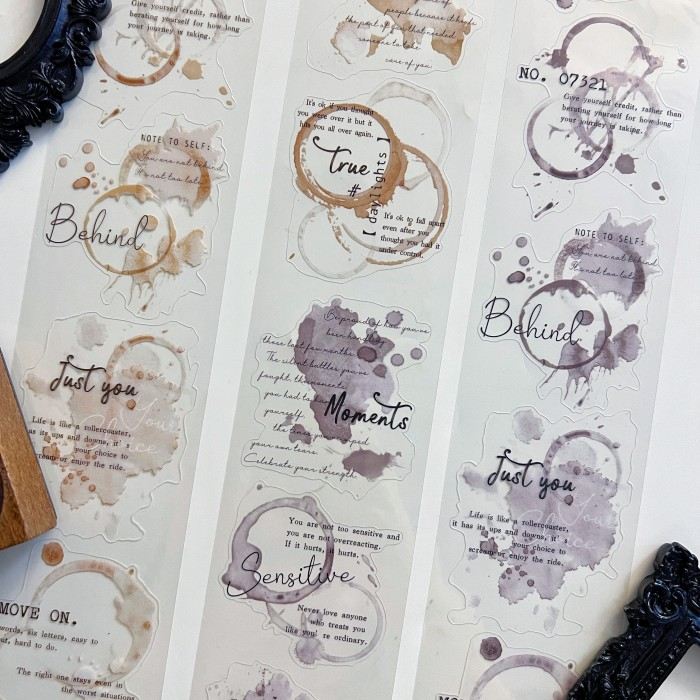 Give yourself credit, rather than
berating yourself for how long
your journey is taking.
NOTE TO SELF:
You are not behind
It's not too late
Behind
Just you
Life is like a rollercoaster,
has its ups and downs, it's
your choice to
scream or enjoy the ride.
MOVE ON.
words, six letters, easy to
out, hard to do.
The right one stays even in
the worst situations
people because it keeps
the part of you that needed
someone to take
care of you
It's ok if you thought
you were over it but it
hits you all over again.
True
#
[ daylights ]
It's ok to fall apart
even after you
thought you had it
under control.
Be proud of how you've
been handling
these last few months.
The silent battles you've
fought, the moments
you had to
yourself,
the times you wiped
your own tears.
Celebrate your strength
Moments
You are not too sensitive and
you are not overreacting.
If it hurts, it hurts.
Sensitive
Never love anyone
who treats you
like you're ordinary.
NO. 07321
Give yourself credit, rather than
berating yourself for how long
your journey is taking.
NOTE TO SELF:
You are not behind
It's not too late
Behind
Just you
Life is like a rollercoaster,
it has its ups and downs, it's
your choice to
scream or enjoy the ride.